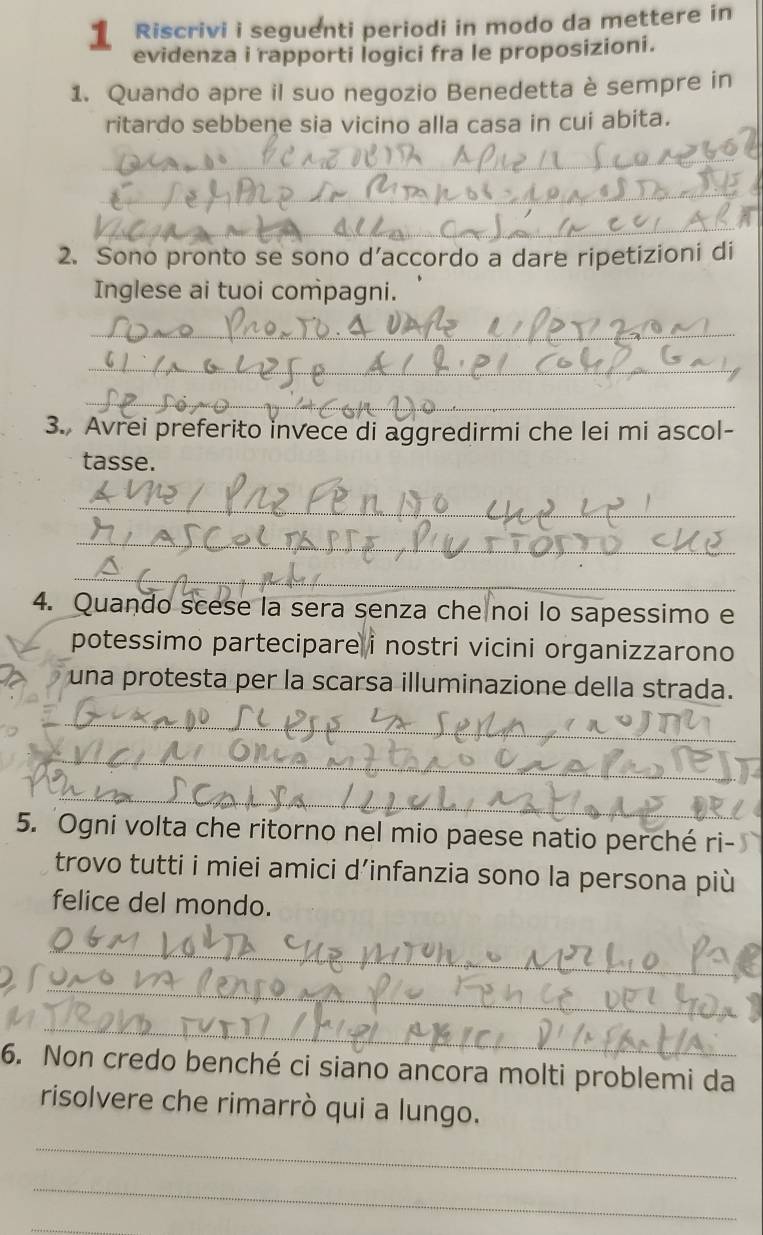 1 Riscrivi i seguenti periodi in modo da mettere in
evidenza i rapporti logici fra le proposizioni.
1. Quando apre il suo negozio Benedetta è sempre in
ritardo sebbene sia vicino alla casa in cui abita.
APRE IL SUO NEGOZ
È SEMPRE IN
VICINANZA ALLA CASA IN CUI ABIT
2. Sono pronto se sono d'accordo a dare ripetizioni di
Inglese ai tuoi compagni.
SONO PRONTO A DARE RIPETIZIONI
DI INGLESE AI COMPAGNI,
SE SONO
3. Avrei preferito invece di aggredirmi che lei mi ascol-
tasse.
AVREI PREFERITO CHE LEI
MI ASCOLTASSE, PIUTTOSTO CHE
4. Quando scese la sera senza che noi lo sapessimo e
potessimo partecipare i nostri vicini organizzarono
una protesta per la scarsa illuminazione della strada.
QUANDO SCESE LA SERA, I NOSTRI
VICINI UNA PROTEST
SCARSA ILLUMINAZIONE DEL
5. Ogni volta che ritorno nel mio paese natio perché ri-
trovo tutti i miei amici d'infanzia sono la persona più
felice del mondo.
OGNI VOLTA CHE RITORNO NEL MIO PAE
SONO LA PERSONA PIÙ FELICE DEL MON
TUTTI I MIEI AMICI D'INFANZIA
6. Non credo benché ci siano ancora molti problemi da
risolvere che rimarrò qui a lungo.